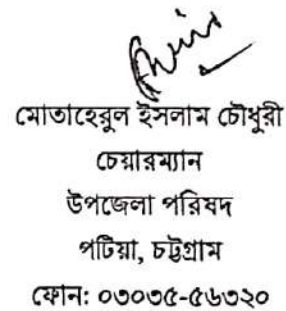 মোতাহেরুল ইসলাম চৌধুরী
চেয়ারম্যান
উপজেলা পরিষদ
পটিয়া, চট্টগ্রাম
ফোন: ০৩০৩৫-৫৬৩২০